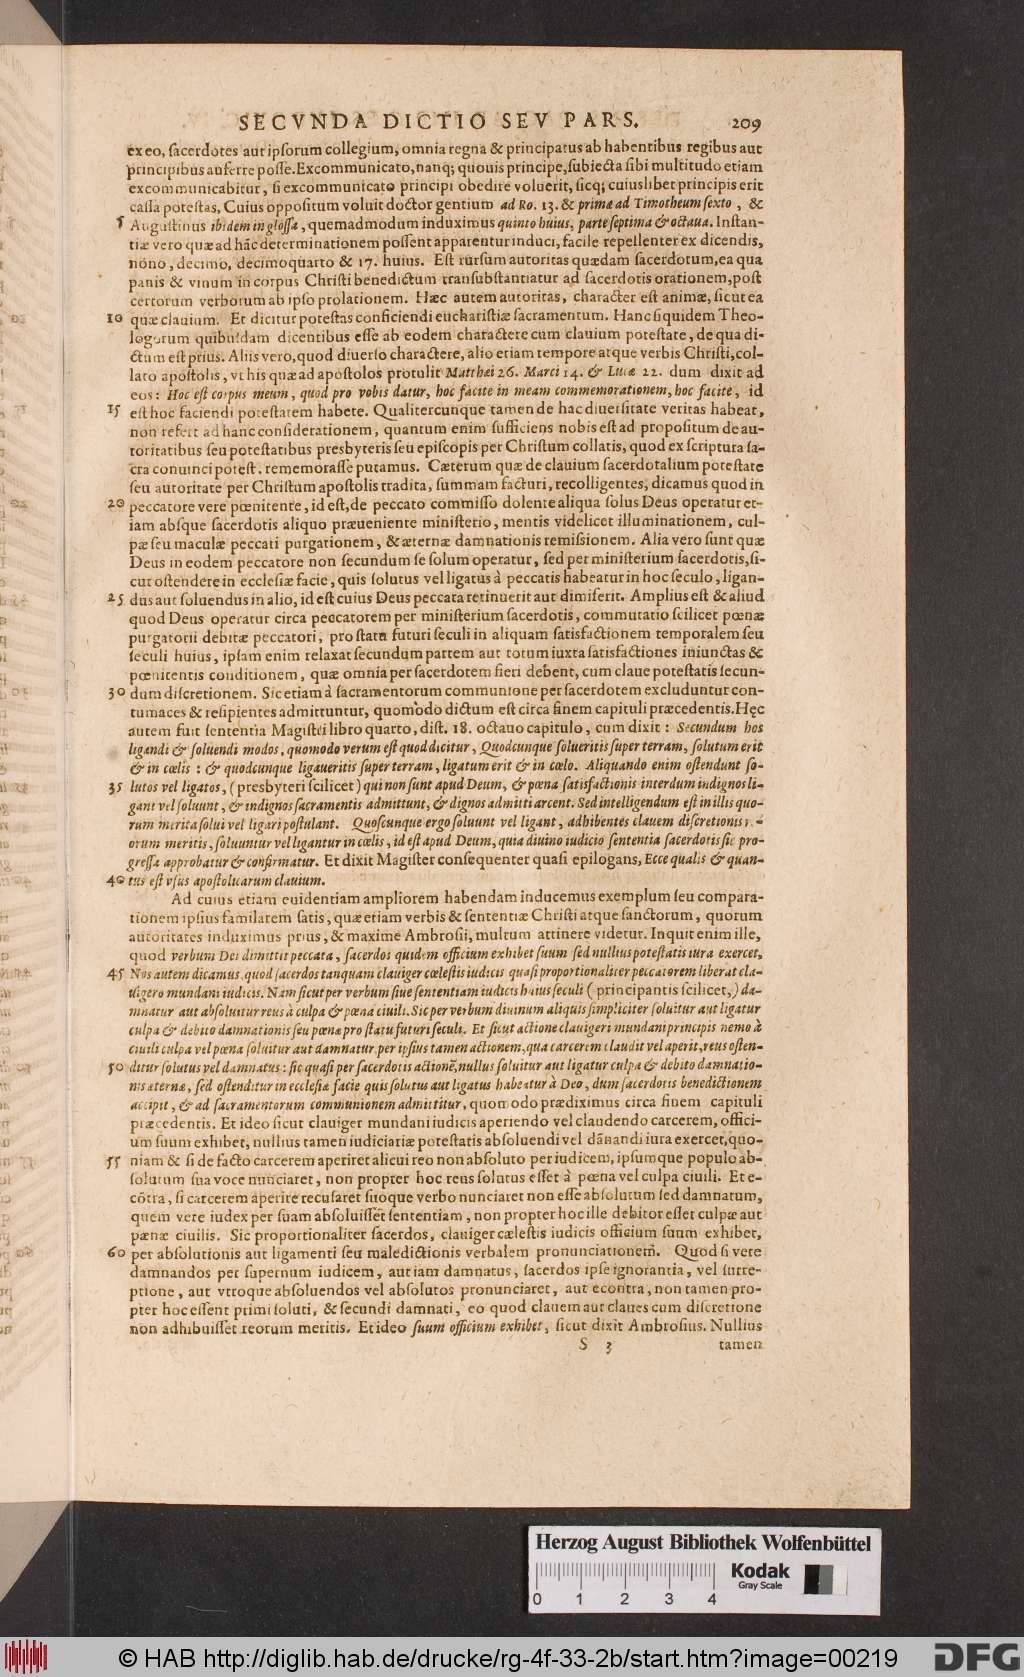 SECVNDA DICTIO SEV PARS. 209
ex eo, sacerdotes aut ipsorum collegium, omnia regna & principatus ab habentibus regibus aut
principibus auferre posse. Excommunicato, nanq; quouis principe, subiecta sibi multitudo etiam
excommunicabitur, si excommunicato principi obedire voluerit, sicq; cuiuslibet principis erit
cassa potestas, Cuius oppositum voluit doctor gentium ad Ro. 13. & prima ad Timotheum sexto, &
5 Augustinus ibidem in glossa, quemadmodum induximus quinto huius, parte septima & octaua. Instan-
tiæ vero quæ ad hāc determinationem possent apparentur induci, facile repellenter ex dicendis,
nono, decimo, decimoquarto & 17. huius. Est rursum autoritas quædam sacerdotum, ea qua
panis & vinum in corpus Christi benedictum transubstantiatur ad sacerdotis orationem, post
certorum verborum ab ipso prolationem. Hæc autem autoritas, character est animæ, sicut ea
10 quæ clauium. Et dicitur potestas conficiendi eucharistiæ sacramentum. Hanc siquidem Theo-
logorum quibusdam dicentibus esse ab eodem charactere cum clauium potestate, de qua di-
ctum est prius. Aliis vero, quod diuerso charactere, alio etiam tempore atque verbis Christi, col-
lato apostolis, vt his quæ ad apostolos protulit Matthæi 26. Marci 14. & Lucæ 22. dum dixit ad
eos: Hoc est corpus meum, quod pro vobis datur, hoc facite in meam commemorationem, hoc facite, id
15 est hoc faciendi potestatem habete. Qualitercunque tamen de hac diuersitate veritas habeat,
non refert ad hanc considerationem, quantum enim sufficiens nobis est ad propositum de au-
toritatibus seu potestatibus presbyteris seu episcopis per Christum collatis, quod ex scriptura sa-
cra conuinci potest, rememorasse putamus. Cæterum quæ de clauium sacerdotalium potestate
seu autoritate per Christum apostolis tradita, summam facturi, recolligentes, dicamus quod in
20 peccatore vere pœnitente, id est, de peccato commisso dolente aliqua solus Deus operatur et-
iam absque sacerdotis aliquo præueniente ministerio, mentis videlicet illuminationem, cul-
pæ seu maculæ peccati purgationem, & æternæ damnationis remissionem. Alia vero sunt quæ
Deus in eodem peccatore non secundum se solum operatur, sed per ministerium sacerdotis, si-
cut ostendere in ecclesiæ facie, quis solutus vel ligatus à peccatis habeatur in hoc seculo, ligan-
25 dus aut soluendus in alio, id est cuius Deus peccata retinuerit aut dimiserit. Amplius est & aliud
quod Deus operatur circa peccatorem per ministerium sacerdotis, commutatio scilicet pœnæ
purgatorii debitæ peccatori, pro statu futuri seculi in aliquam satisfactionem temporalem seu
seculi huius, ipsam enim relaxat secundum partem aut totum iuxta satisfactiones iniunctas &
pœnitentis conditionem, quæ omnia per sacerdotem fieri debent, cum claue potestatis secun-
30 dum discretionem. Sic etiam à sacramentorum communione per sacerdotem excluduntur con-
tumaces & resipientes admittuntur, quomodo dictum est circa finem capituli præcedentis. Hęc
autem fuit sententia Magistri libro quarto, dist. 18. octauo capitulo, cum dixit: Secundum hos
ligandi & soluendi modos, quomodo verum est quod dicitur, Quodcunque solueritis super terram, solutum erit
& in cœlis: & quodcunque ligaueritis super terram, ligatum erit & in cœlo. Aliquando enim ostendunt so-
35 lutos vel ligatos, (presbyteri scilicet) qui non sunt apud Deum, & pœna satisfactionis interdum indignos li-
gant vel soluunt, & indignos sacramentis admittunt, & dignos admitti arcent. Sed intelligendum est in illis quo-
rum merita solui vel ligari postulant. Quoscunque ergo soluunt vel ligant, adhibentes clauem discretionis
orum meritis, soluuntur vel ligantur in cœlis, id est apud Deum, quia diuino iudicio sententia sacerdotis sic pro-
gressa approbatur & confirmatur. Et dixit Magister consequenter quasi epilogans, Ecce qualis & quan-
40 tus est vsus apostolicarum clauium.
Ad cuius etiam euidentiam ampliorem habendam inducemus exemplum seu compara-
tionem ipsius familarem satis, quæ etiam verbis & sententiæ Christi atque sanctorum, quorum
autoritates induximus prius, & maxime Ambrosii, multum attinere videtur. Inquit enim ille,
quod verbum Dei dimittit peccata, sacerdos quidem officium exhibet suum sed nullius potestatis iura exercet,
45 Nos autem dicamus, quod sacerdos tanquam clauiger cœlestis iudicis quasi proportionaliter peccatorem liberat cla-
uigero mundani iudicis. Nam sicut per verbum siue sententiam iudicis huius seculi (principantis scilicet,) da-
mnatur aut absoluitur reus à culpa & pœna ciuili. Sic per verbum diuinum aliquis simpliciter soluitur aut ligatur
culpa & debito damnationis seu pœna pro statu futuri seculi. Et sicut actione clauigeri mundani principis nemo à
ciuili culpa vel pœna soluitur aut damnatur, per ipsius tamen actionem, qua carcerem claudit vel aperit, reus osten-
50 ditur solutus vel damnatus: sic quasi per sacerdotis actionē, nullus soluitur aut ligatur culpa & debito damnatio-
nis æternæ, sed ostenditur in ecclesiæ facie quis solutus aut ligatus habeatur à Deo, dum sacerdotis benedictionem
accipit, & ad sacramentorum communionem admittitur, quomodo prædiximus circa finem capituli
præcedentis. Et ideo sicut clauiger mundani iudicis aperiendo vel claudendo carcerem, offici-
um suum exhibet, nullius tamen iudiciariæ potestatis absoluendi vel dānandi iura exercet, quo-
55 niam & si de facto carcerem aperiret alicui reo non absoluto per iudicem, ipsumque populo ab-
solutum sua voce nunciaret, non propter hoc reus solutus esset à pœna vel culpa ciuili. Et e-
cōtra, si carcerem aperire recusaret suoque verbo nunciaret non esse absolutum sed damnatum,
quem vere iudex per suam absoluisset sententiam, non propter hoc ille debitor esset culpæ aut
pænæ ciuilis. Sic proportionaliter sacerdos, clauiger cælestis iudicis officium suum exhibet,
60 per absolutionis aut ligamenti seu maledictionis verbalem pronunciationem. Quod si vere
damnandos per supernum iudicem, aut iam damnatus, sacerdos ipse ignorantia, vel surre-
ptione, aut vtroque absoluendos vel absolutos pronunciaret, aut econtra, non tamen pro-
pter hoc essent primi soluti, & secundi damnati, eo quod clauem aut claues cum discretione
non adhibuisset reorum meritis. Et ideo suum officium exhibet, sicut dixit Ambrosius. Nullius
S 3 tamen
Herzog August Bibliothek Wolfenbüttel
0 1 2 3 4
Kodak
Gray Scale
© HAB http://diglib.hab.de/drucke/rg-4f-33-2b/start.htm?image=00219
DFG